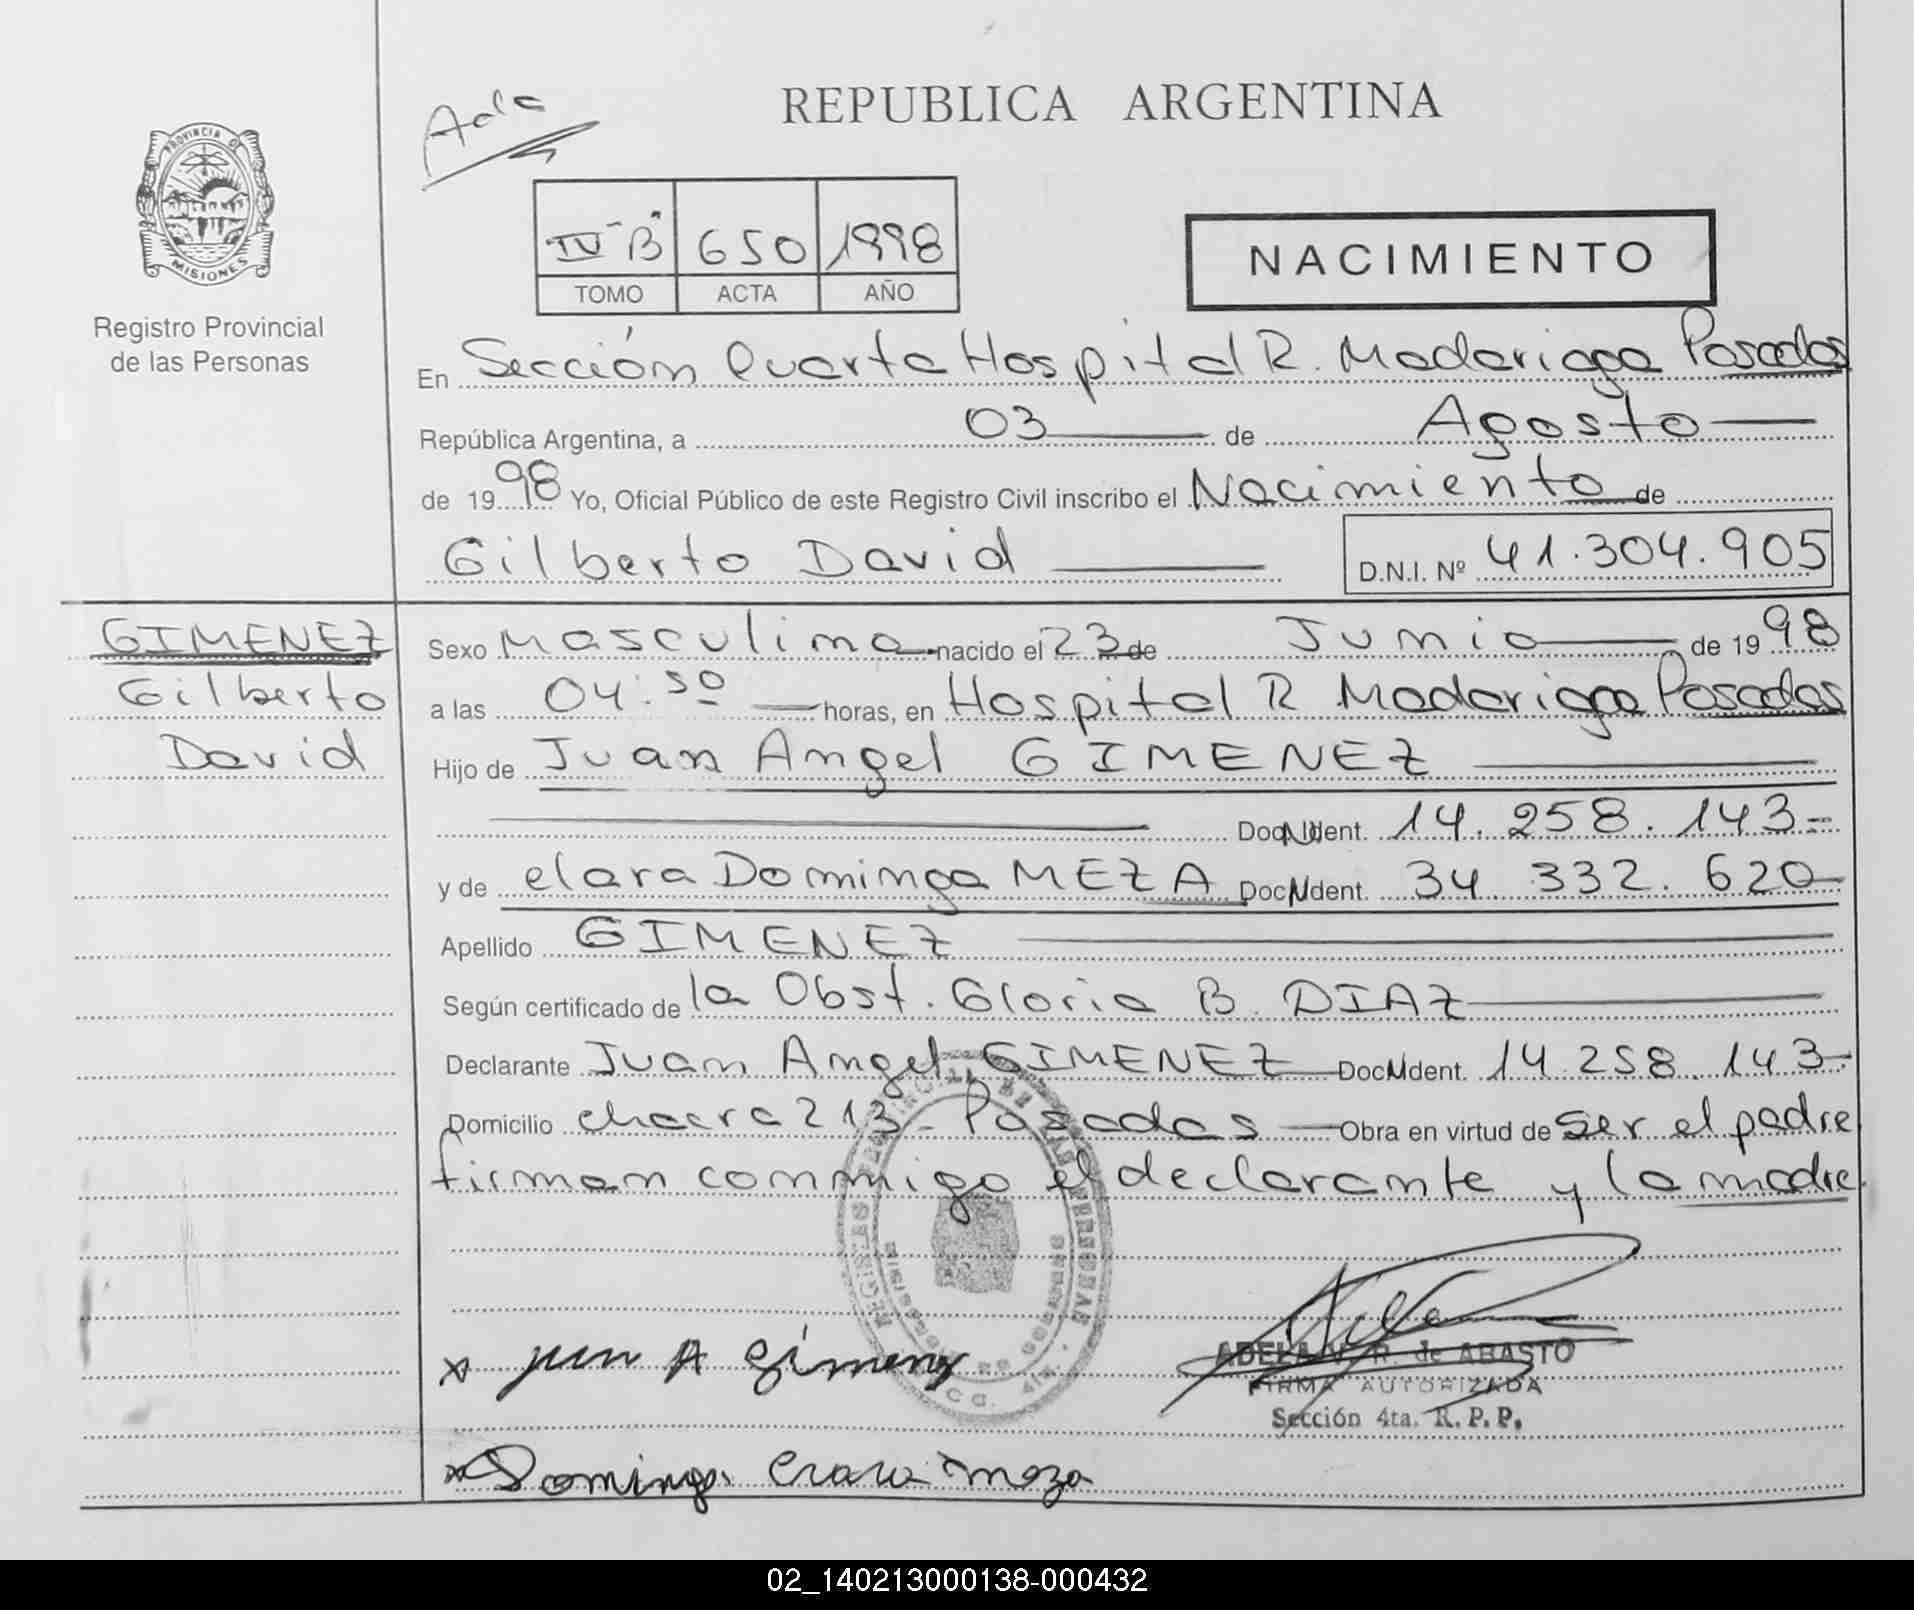 Ada
REPUBLICA ARGENTINA
PROVINCIA DE
MISIONES
Registro Provincial
de las Personas
IV-"B" 650 1998
TOMO ACTA AÑO
NACIMIENTO
En Sección Cuarta Hospital R. Madariaga Posadas
República Argentina, a 03 de Agosto
de 1998 Yo, Oficial Público de este Registro Civil inscribo el Nacimiento de
Gilberto David D.N.I. Nº 41.304.905
GIMENEZ
Gilberto
David
Sexo Masculino nacido el 23 de Junio de 1998
a las 04:50 horas, en Hospital R Madariaga Posadas
Hijo de Juan Angel GIMENEZ
Doc. Ident. 14.258.143-
y de Clara Dominga MEZA Doc. Ident. 34.332.620
Apellido GIMENEZ
Según certificado de la Obst. Gloria B. DIAZ
Declarante Juan Angel GIMENEZ Doc. Ident. 14.258.143-
Domicilio chacra 213 - Posadas Obra en virtud de ser el padre
firman conmigo el declarante y la madre.
x Juan A Gimenez
ADELA V. R. de ABASTO
FIRMA AUTORIZADA
Sección 4ta. R. P. P.
x Dominga Clara meza
02_140213000138-000432